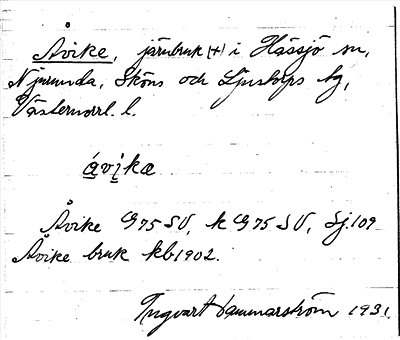 Åvike, järnbruk (+) i Hässjö sn,
Njurunda, Sköns och Ljustorps tg,
Västernorrl. l.
ávikæ
Åvike G75 SV, k G75 SV, Sj.109
Åvike bruk kb1902.
Ingvart Hammarström 1931.